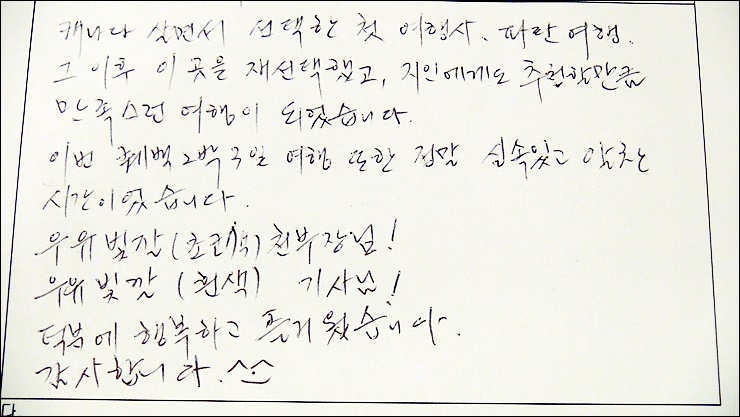 캐나다 살면서 선택한 첫 여행사. 파란여행.
그 이후 이 곳을 재선택했고, 지인에게도 추천할만큼
만족스런 여행이 되었습니다.
이번 퀘백 2박 3일 여행 또한 정말 실속있고 알찬
시간이었습니다.
우유빛깔(초코색)천부장님!
우유빛깔 (흰색) 기사님!
덕분에 행복하고 즐거웠습니다.
감사합니다. ^^
다